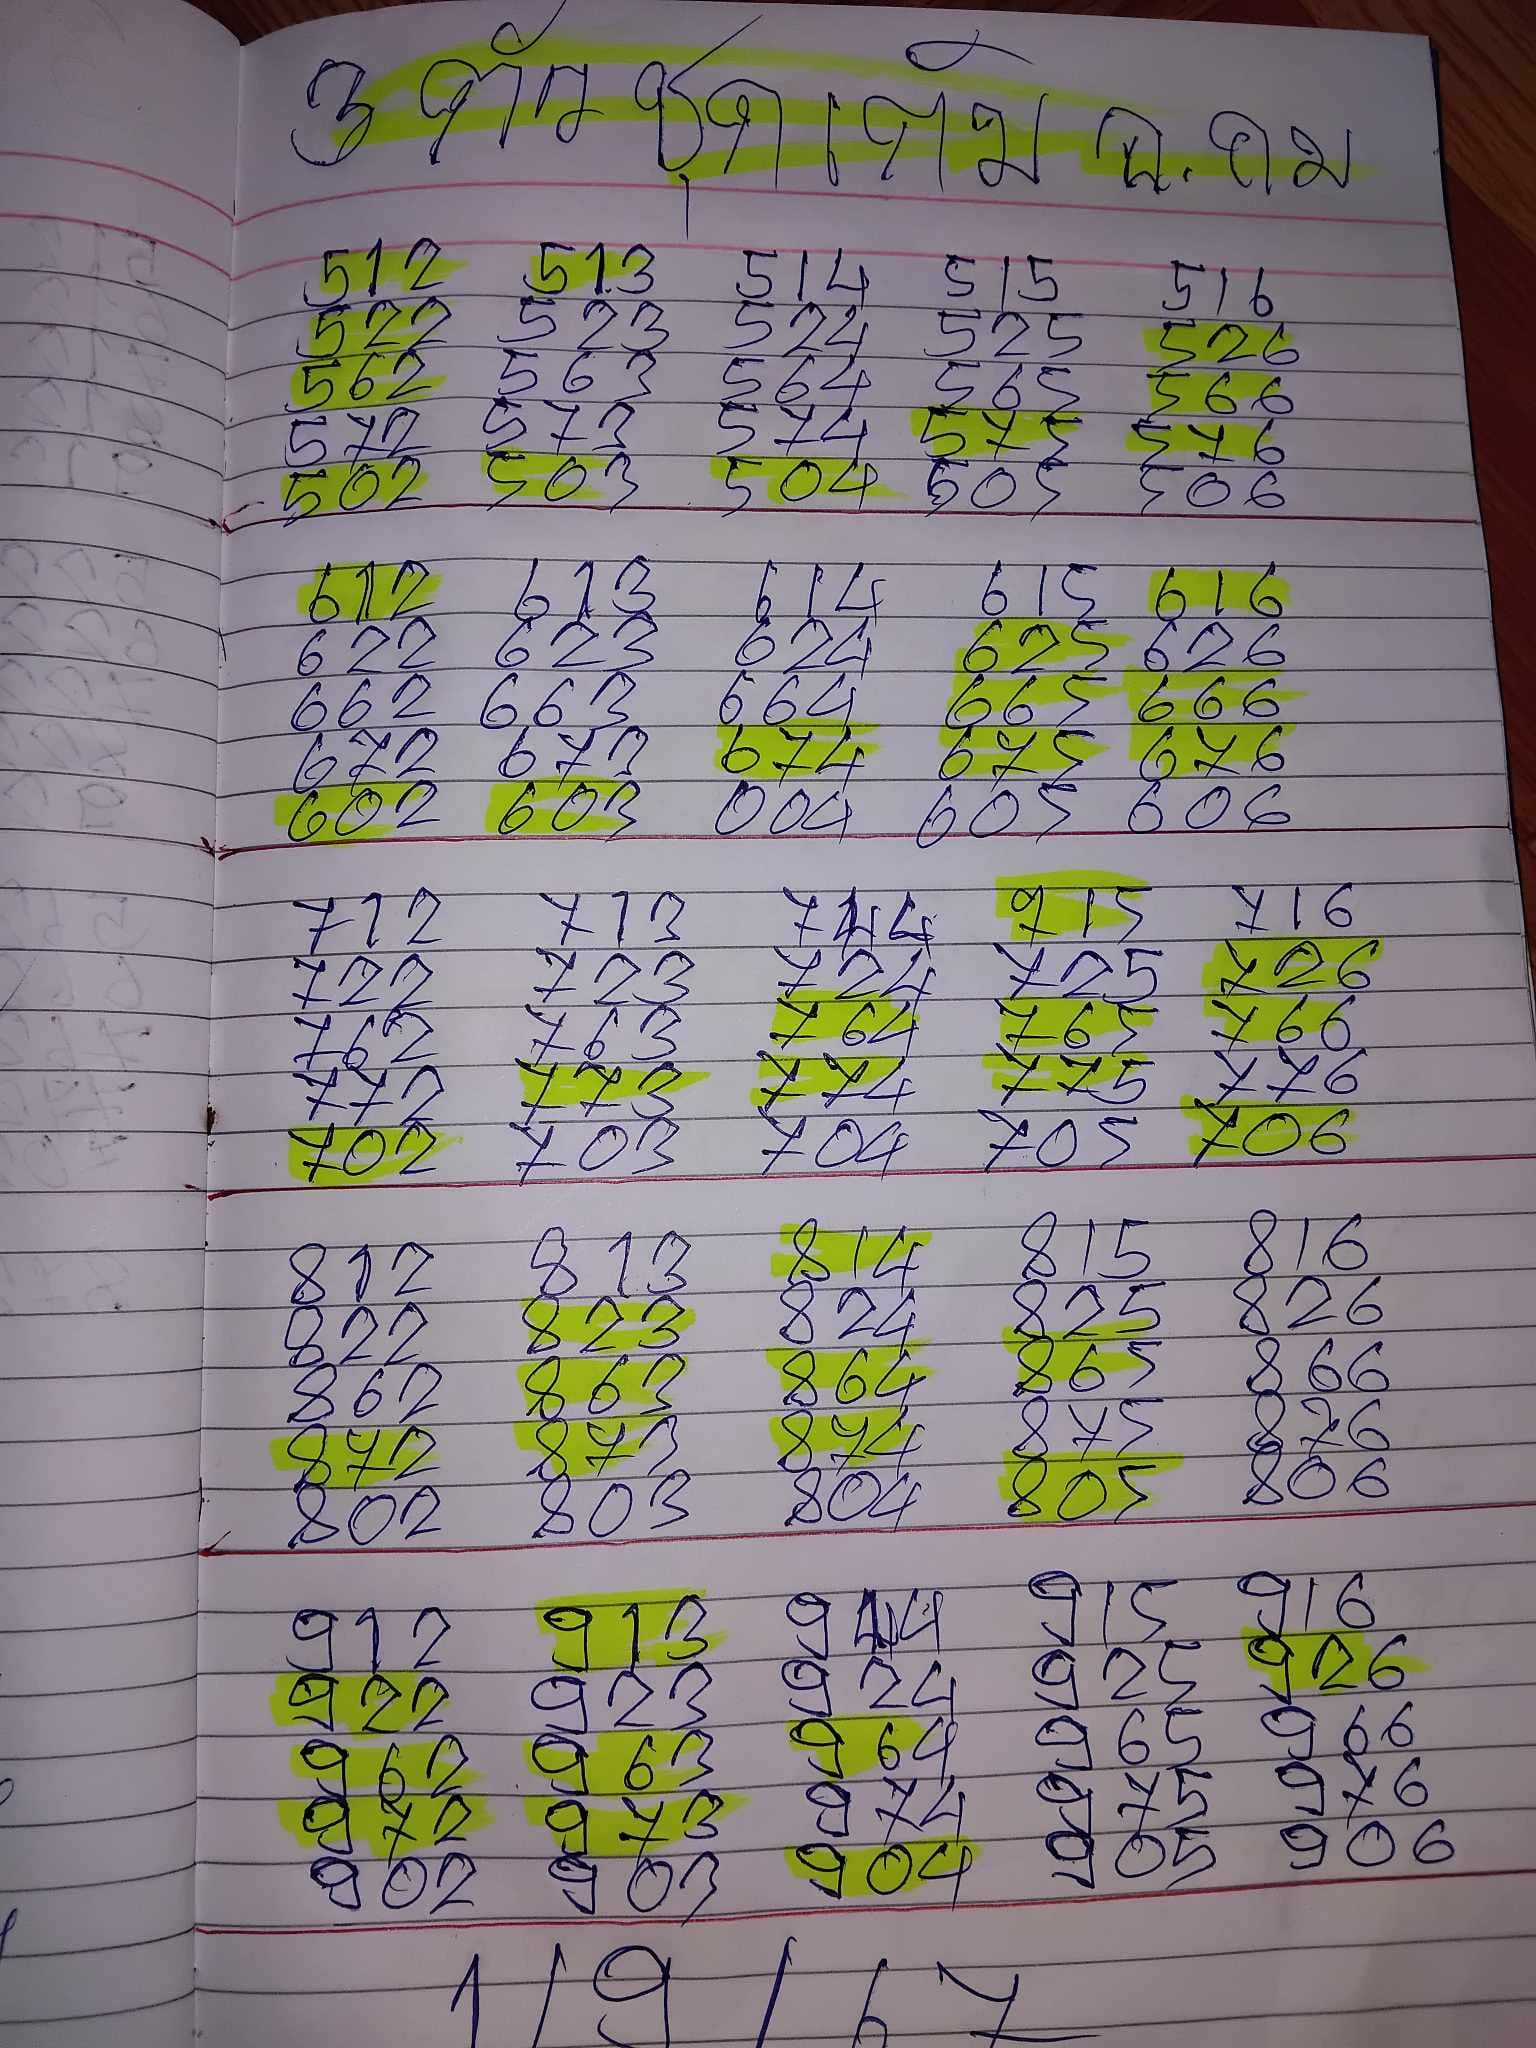 3 ตัว ชุดเต็ม อ.คม
512 513 514 515 516
522 523 524 525 526
562 563 564 565 566
572 573 574 575 576
502 503 504 505 506
612 613 614 615 616
622 623 624 625 626
662 663 664 665 666
672 673 674 675 676
602 603 004 605 606
712 713 714 915 716
722 723 724 725 726
762 763 764 765 766
772 773 774 775 776
702 703 704 705 706
812 813 814 815 816
822 823 824 825 826
862 863 864 865 866
872 873 874 875 876
802 803 804 805 806
912 913 914 915 916
922 923 924 925 926
962 963 964 965 966
972 973 974 975 976
902 903 904 905 906
1/9/67